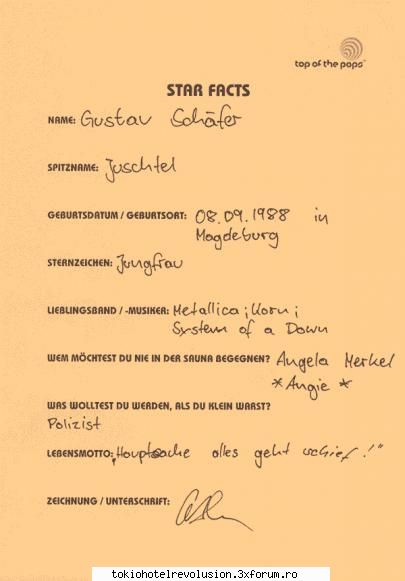 top of the pops
STAR FACTS
NAME: Gustav Schäfer
SPITZNAME: Juschtel
GEBURTSDATUM / GEBURTSORT: 08.09.1988 in
Magdeburg
STERNZEICHEN: Jungfrau
LIEBLINGSBAND / -MUSIKER: Metallica; Korn;
System of a Down
WEM MÖCHTEST DU NIE IN DER SAUNA BEGEGNEN? Angela Merkel
*Angie*
WAS WOLLTEST DU WERDEN, ALS DU KLEIN WARST?
Polizist
LEBENSMOTTO: „Hauptsache alles geht schief!"
ZEICHNUNG / UNTERSCHRIFT:
tokiohotelrevolusion.3xforum.ro